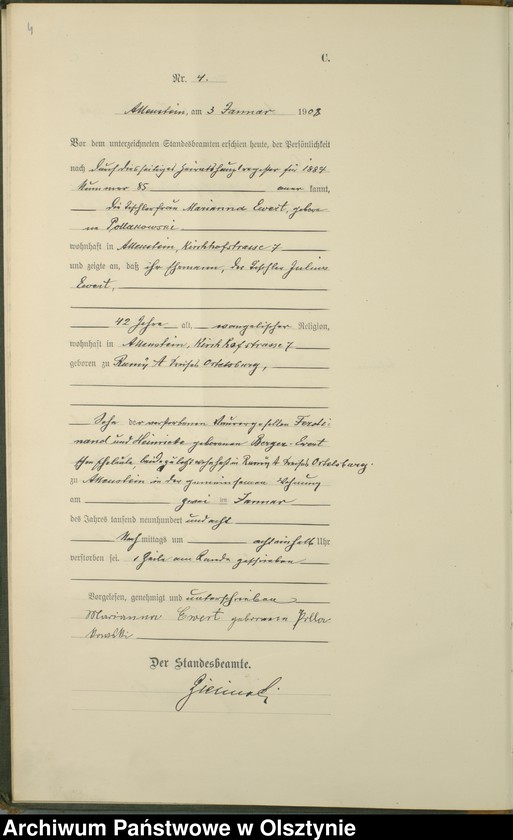 4
C.
Nr. 4.
Allenstein, am 3 Januar 1908
Vor dem unterzeichneten Standesbeamten erschien heute, der Persönlichkeit
nach durch diesseitiges Heiratshauptregister für 1887
Nummer 85 aner kannt,
die Tischlerfrau Marianna Ewert, gebore
ne Pollakowski
wohnhaft in Allenstein, Kirchhofstrasse 7
und zeigte an, daß ihr Ehemann, der Tischler Julius
Ewert,
42 Jahre alt, evangelischer Religion,
wohnhaft in Allenstein, Kirchhofstrasse 7
geboren zu A Kreises Ortelsburg,
Sohn der verstorbenen Maurergesellen Ferdi
nand und Heinriette geborenen Ewert
schen Eheleute, beide zuletzt wohnhaft in A Kreises Ortelsburg.
zu Allenstein in der gemeinsamen Wohnung
am zwei ten Januar
des Jahres tausend neunhundert und acht
Nach mittags um achteinhalb Uhr
verstorben sei. 1 Zeile am Rande gestrichen
Vorgelesen, genehmigt und unterschrieben
Marianna Ewert geborene Polla
kowski
Der Standesbeamte.
Archiwum Państwowe w Olsztynie